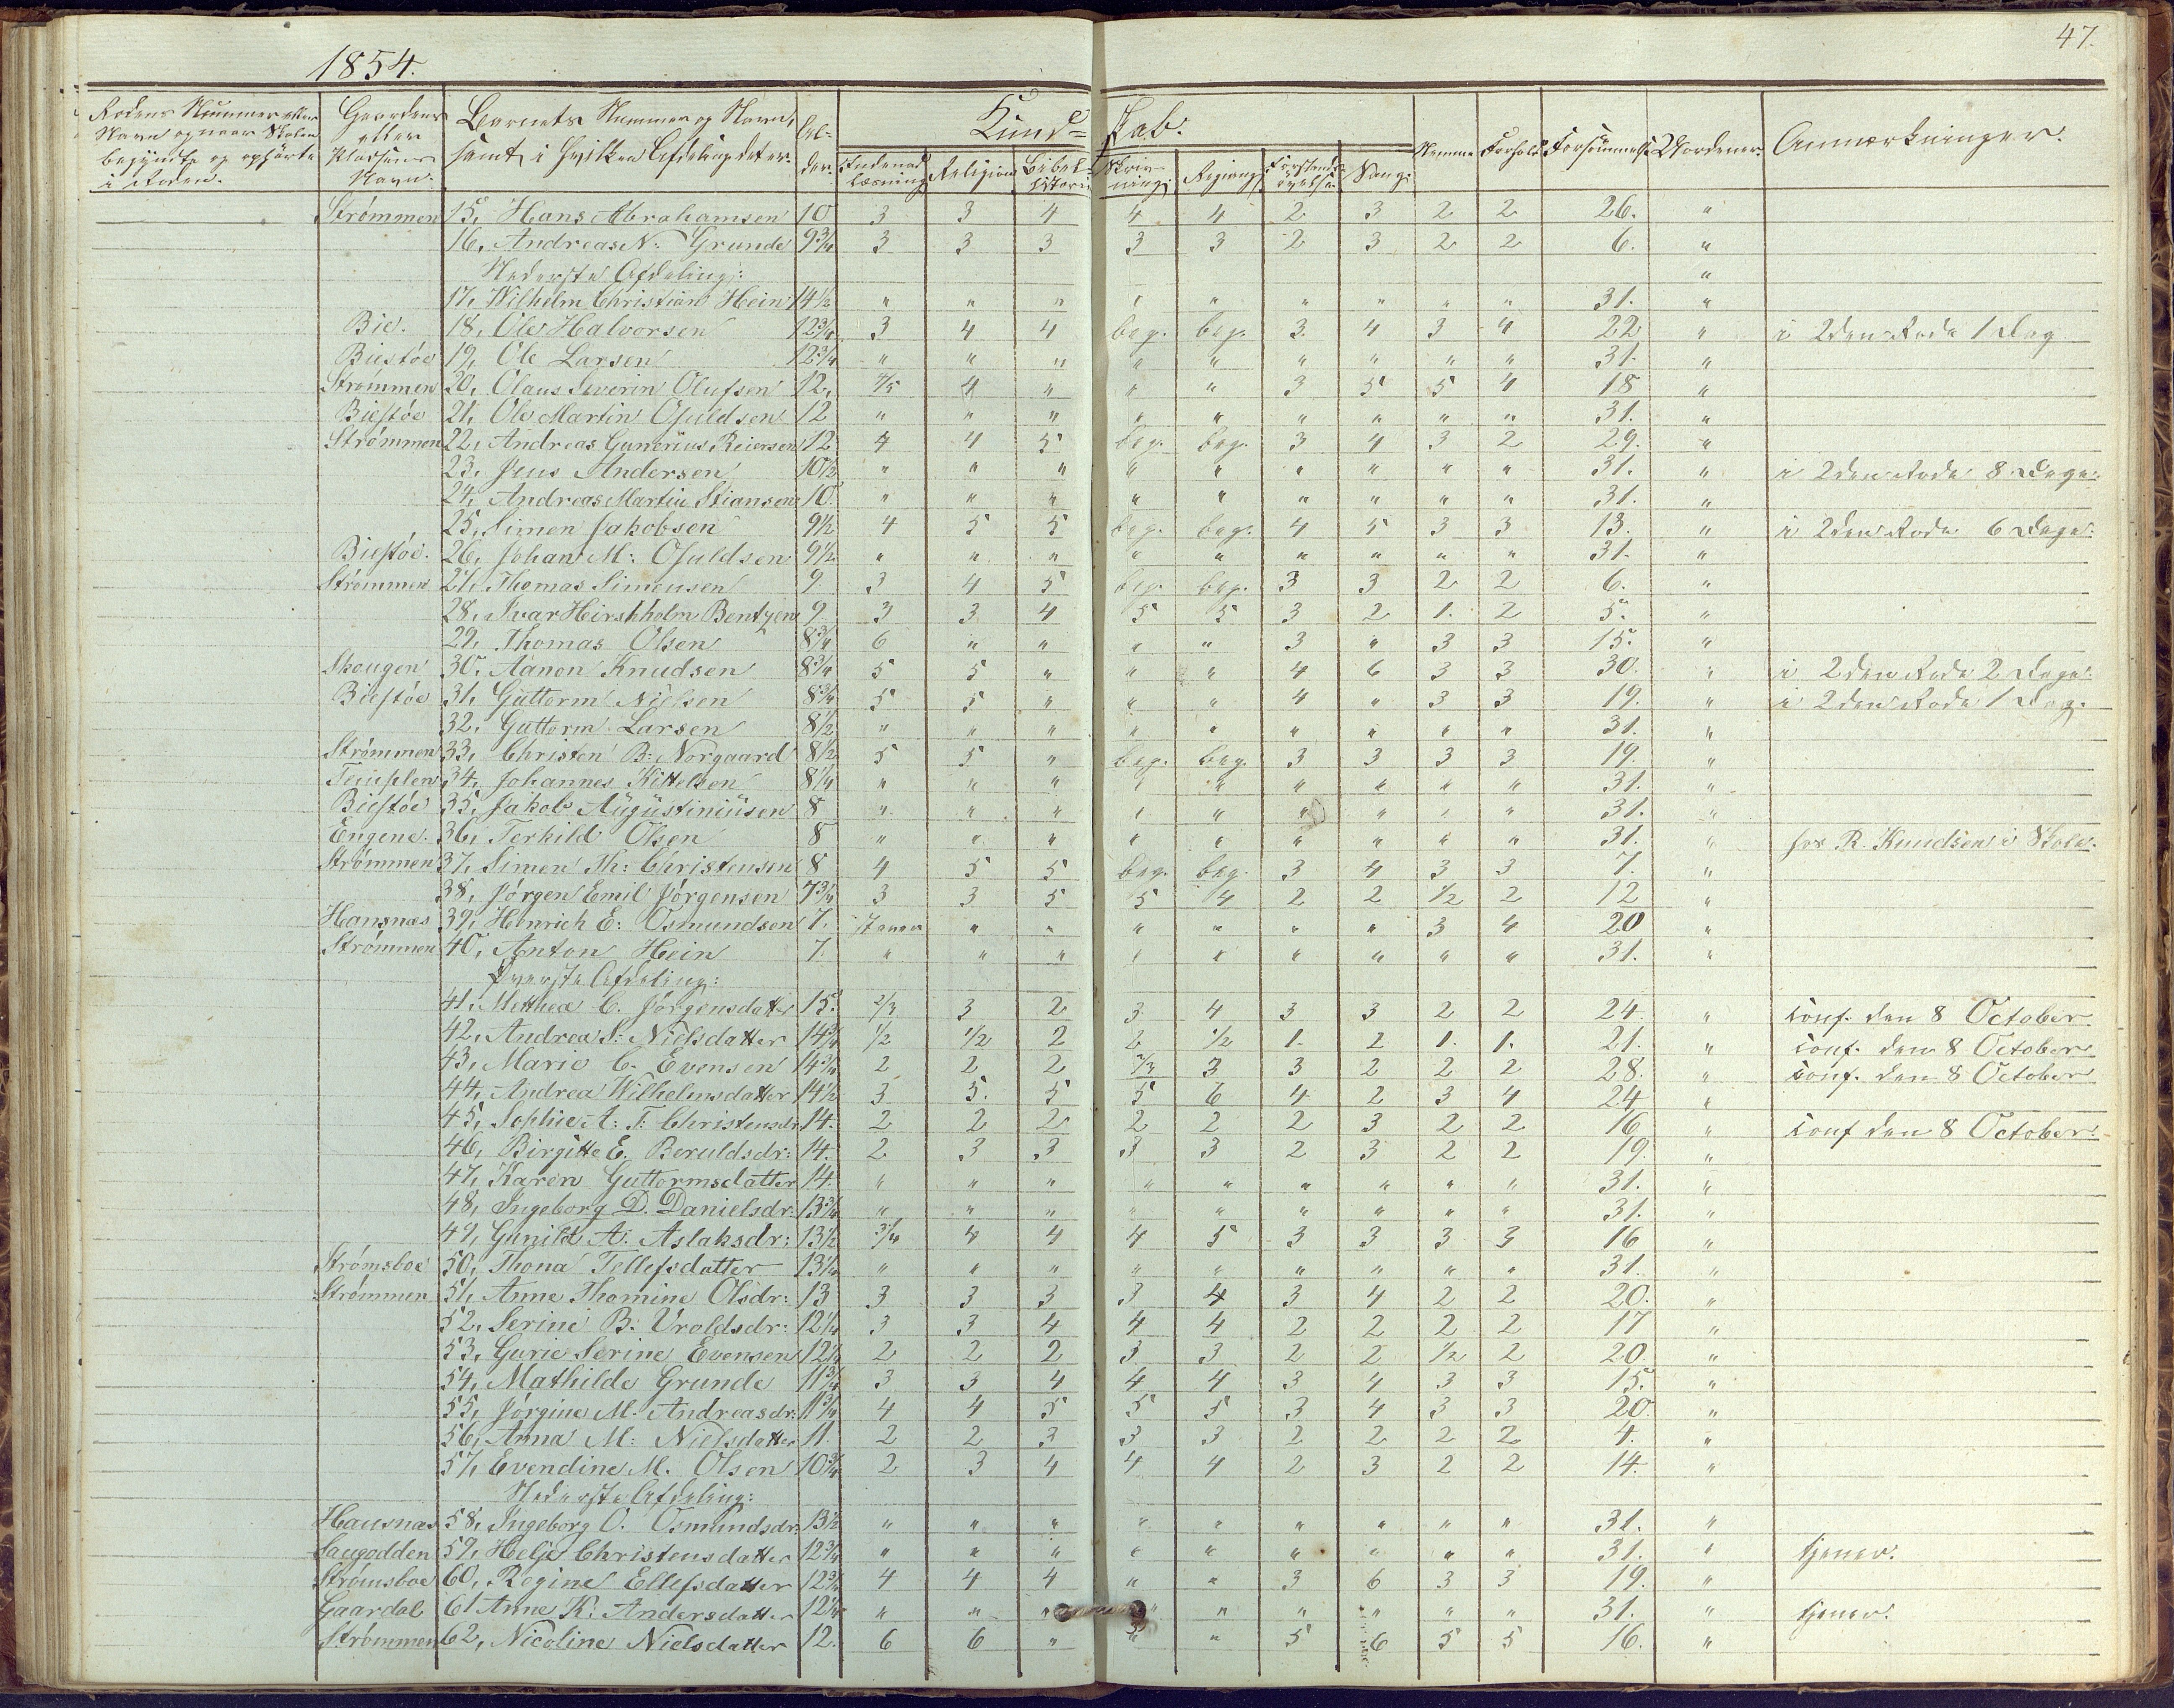 47.
1854.
Rodens Nummer eller Navn og naar Skolen begyndte og ophörte i Roden. | Gaardens eller Pladsens Navn. | Barnets Nummer og Navn, samt i hvilken Afdeling det er. | Alder. | Kund= skab: | Nemme | Forhold | Forsömmelse | Uordener. | Anmærkninger.
Indenadlæsning | Religion | Bibelhistorie | Skrivning | Regning | Forstandsövelse | Sang:
Strømmen 15, Hans Abrahamsen 10 3 3 4 4 4 2 3 2 2 26. "
16, Andreas N: Grunde 9¾ 3 3 3 3 3 2 3 2 2 6. "
Nederste Afdeling: "
17, Wilhelm Christian Hein 14½ " " " " " " " " " 31. "
Bie. 18, Ole Halvorsen 12¾ 3 4 4 beg. beg. 3. 4 3 4 22 " i 2den Rode 1 Dag
Biestøe 19, Ole Larsen 12¾ " " " " " " " " " 31. "
Strømmen 20, Olaus Severin Olufsen 12, 4/5 4 " " " 3 5 5 4 18 "
Biestøe 21, Ole Martin Osuldsen 12 " " " " " " " " " 31. "
Strømmen 22, Andreas Gunerius Reiersen 12 4 4 5 beg. beg. 3 4 3 2 29. "
23, Jens Andersen 10½ " " " " " " " " " 31. " i 2den Rode 8 Dage.
24, Andreas Martin Stiansen 10 " " " " " " " " " 31. "
25, Simen Jakobsen 9½ 4 5 5 beg. beg. 4 5 3 3 13. " i 2den Rode 6 Dage.
Biestøe. 26, Johan M: Osuldsen 9½ " " " " " " " " " 31. "
Strømmen 27, Thomas Simensen 9 3 4 5 beg. beg. 3 3 2 2 6. "
28, Ivar Hirschholm Bentzen 9 3 3 4 5 5 3 2 1. 2 5. "
29, Thomas Olsen 8¾ 6 " " " " 3 " 3 3 15. "
Skougen 30, Aanon Knudsen 8¾ 5 5 " " " 4 6 3 3 30. " i 2den Rode 2 Dage.
Biestøe 31, Guttorm Nielsen 8¾ 5 5 " " " 4 " 3 3 19. " i 2den Rode 1 Dag.
32, Guttorm Larsen 8½ " " " " " " " " " 31. "
Strømmen 33, Christen B: Norgaard 8½ 5 5 " beg. beg. 3 3 3 3 19. "
Templen 34, Johannes Kittelsen 8¼ " " " " " " " " " 31. "
Biestøe 35, Jakob Augustiniusen 8 " " " " " " " " " 31. "
Engene. 36, Terkild Olsen 8 " " " " " " " " " 31. " hos R. Knudsen i Skole.
Strømmen 37, Simen Th: Christensen 8 4 5 5 beg. beg. 3 4 3 3 7. "
38, Jørgen Emil Jørgensen 7¾ 3 3 5 5 4 2 2 ½ 2 12 "
Hansnæs 39, Henrich E: Osmundsen 7. staver " " " " " " 3 4 20 "
Strømmen 40, Anton Hein 7. " " " " " " " " " 31. "
Øverste Afdeling:
41, Mathea C. Jørgensdatter 15. 2/3 3 2 3 4 3 3 2 2 24. " conf. den 8 October
42, Andrea S: Nielsdatter 14¾ ½ ½ 2 2 ½ 1. 2 1. 1. 21. " conf. den 8 October
43, Marie C. Evensen 14¾ 2 2 2 2/3 3 3 2 2 2 28. " conf. den 8 October
44, Andrea Wilhelmsdatter 14½ 3 5. 5 5 6 4 2 3 4 24 "
45, Sophie A: T: Christensdr 14. 2 2 2 2 2 2 3 2 2 16 " conf den 8 October.
46, Birgitte E. Beruldsdr: 14. 2 3 3 3 3 2 3 2 2 19. "
47, Karen Guttormsdatter 14. " " " " " " " " " 31. "
48, Ingeborg D. Danielsdr: 13¾ " " " " " " " " " 31. "
49, Gunild A. Aslaksdr: 13½ 3/4 4 4 4 5 3 3 3 3 16 "
Strømsboe 50, Thona Tellefsdatter 13¼ " " " " " " " " " 31. "
Strømmen 51, Anne Thomine Olsdr: 13 3 3 3 3 4 3 4 2 2 20. "
52, Serine B. Vroldsdr: 12¼ 3 3 4 4 4 2 2 2 2 17 "
53, Gurie Serine Evensen 12¼ 2 2 2 3 3 2 2 ½ 2 20. "
54, Mathilde Grunde 11¾ 3 3 4 4 4 3 4 3 3 15. "
55, Jørgine M. Andreasdr: 11¾ 4 4 5 5 5 3 4 3 3 20. "
56, Anna M: Nielsdatter 11. 2 2 3 3 3 2 2 2 2 4. "
57, Evendine M. Olsen 10¾ 2 3 4 4 4 2 3 2 2 14. "
Nederste Afdeling:
Hansnæs 58, Ingeborg O. Osmundsdr. 13½ " " " " " " " " " 31. "
Saugodden 59, Helje Christensdatter 12¾ " " " " " " " " " 31. " tjener.
Strømsboe 60, Regine Ellefsdatter 12¾ 4 4 4 " " 3 6 3 3 19. "
Gaardal 61 Anne K: Andersdatter 12¼ " " " " " " " " " 31. " tjener.
Strømmen 62, Nicoline Nielsdatter 12. 6 6 " " " 5 6 5 5 16. "